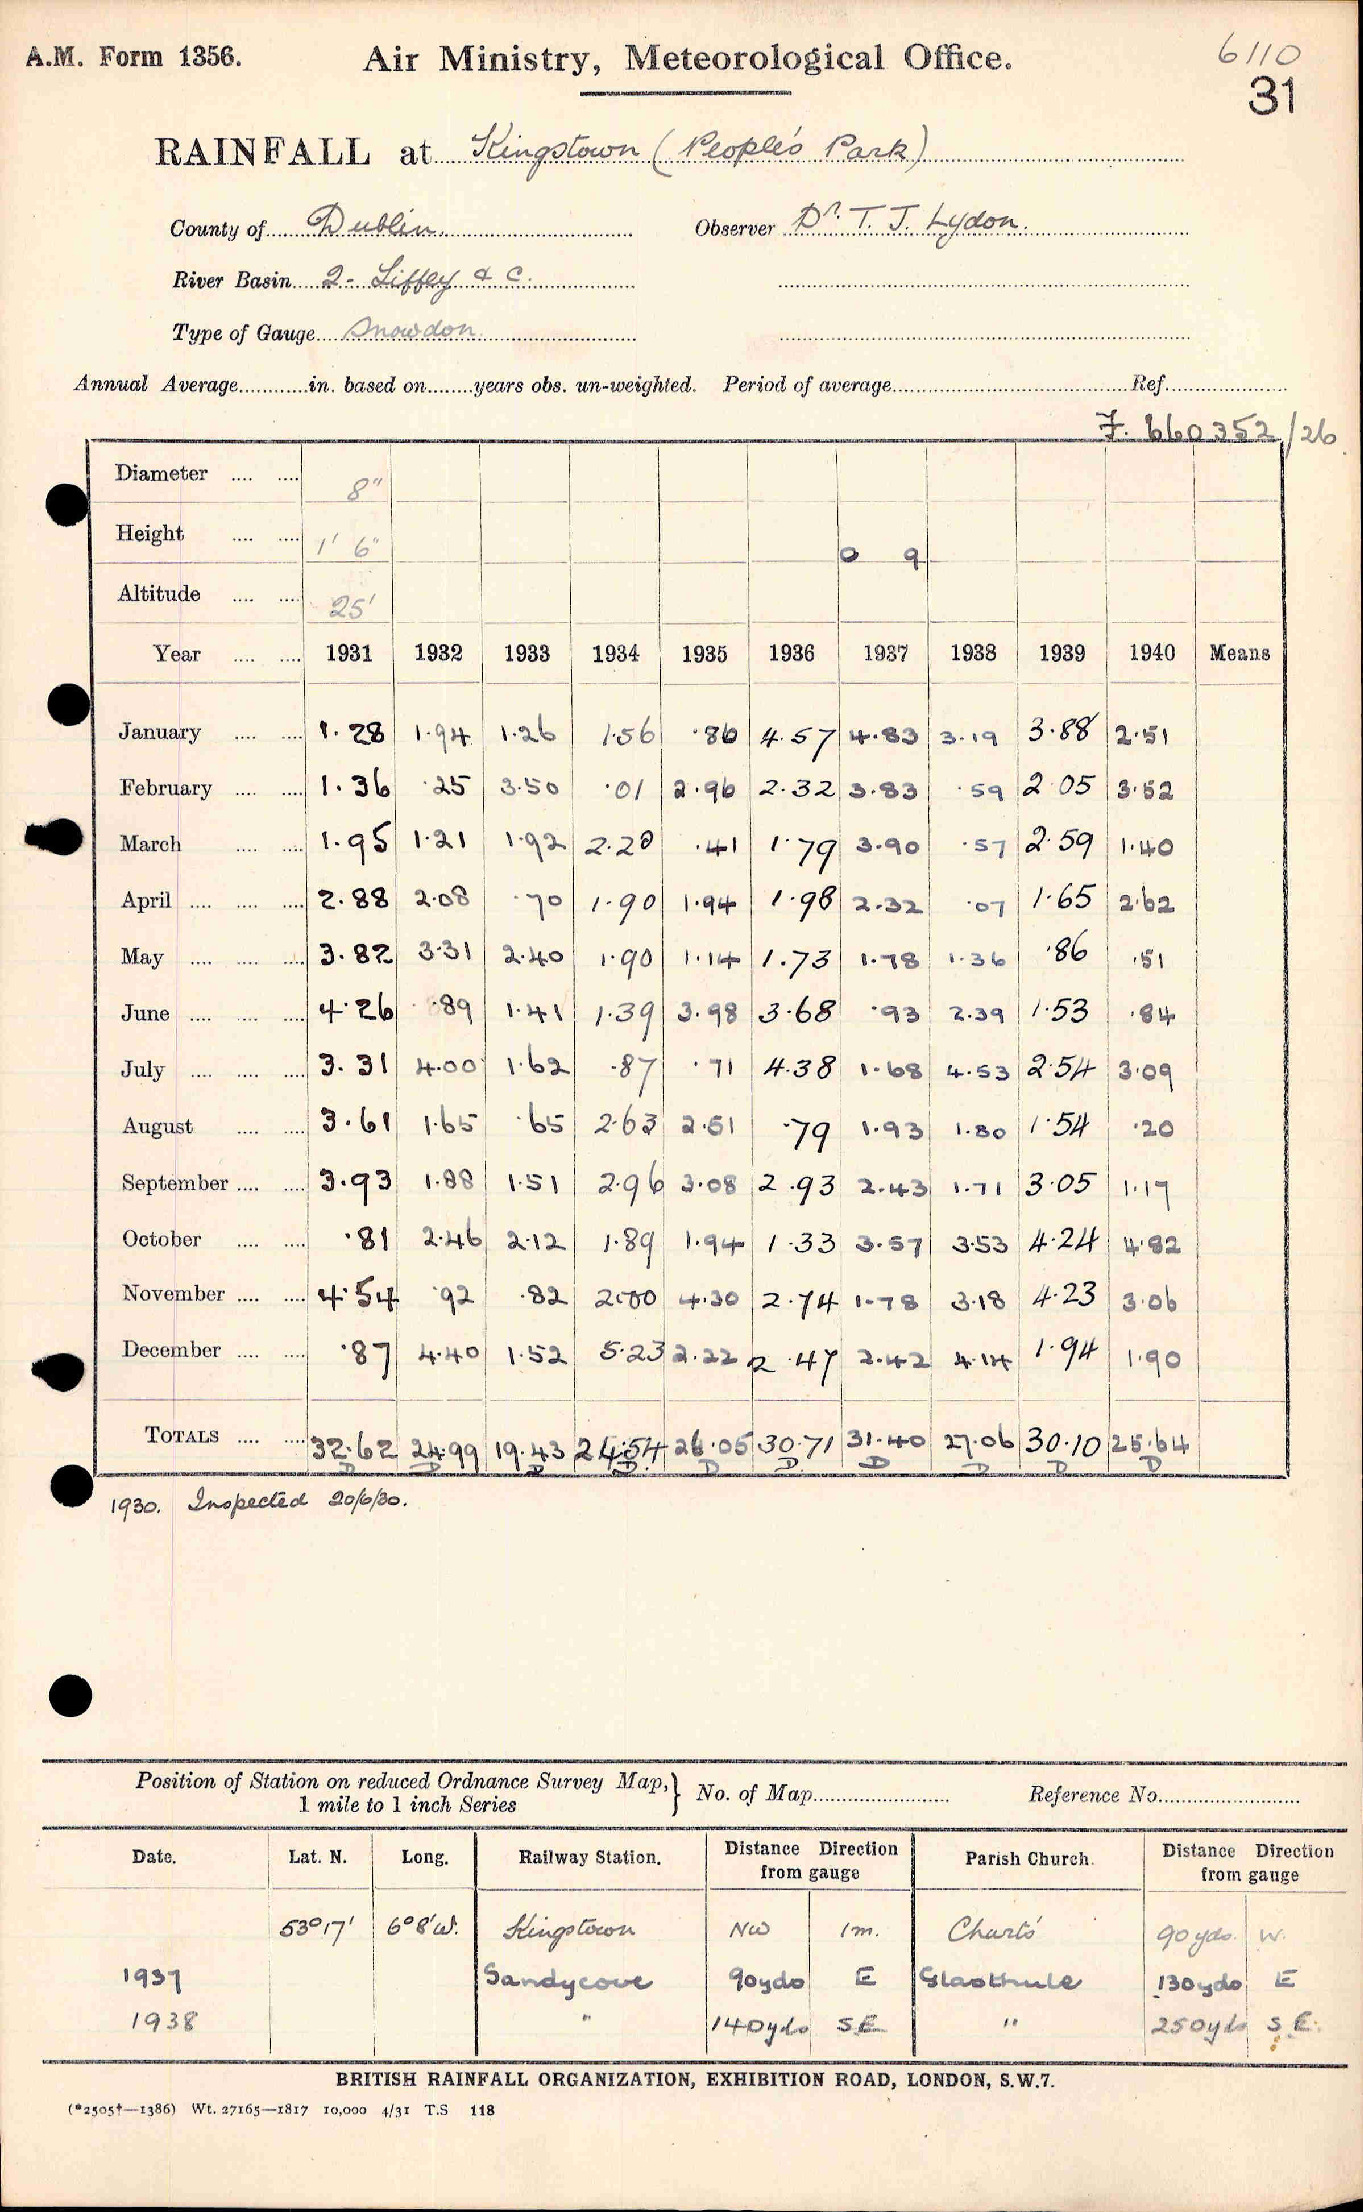 A.M. Form 1356.
Air Ministry, Meteorological Office.
6110
31
RAINFALL at Kingstown (People's Park)
County of Dublin. Observer Dr. T. J. Lydon.
River Basin 2- Liffey & c.
Type of Gauge Snowdon.
Annual Average in. based on years obs. un-weighted. Period of average Ref.
F. 660352/26
Diameter 8"
Height 1' 6" 0 9
Altitude 25'
Year 1931 1932 1933 1934 1935 1936 1937 1938 1939 1940 Means
January 1.28 1.94 1.26 1.56 .86 4.57 4.83 3.19 3.88 2.51
February 1.36 .25 3.50 .01 2.96 2.32 3.83 .59 2.05 3.52
March 1.95 1.21 1.92 2.20 .41 1.79 3.90 .57 2.59 1.40
April 2.88 2.08 .70 1.90 1.94 1.98 2.32 .07 1.65 2.62
May 3.82 3.31 2.40 1.90 1.14 1.73 1.78 1.36 .86 .51
June 4.26 .89 1.41 1.39 3.98 3.68 .93 2.39 1.53 .84
July 3.31 4.00 1.62 .87 .71 4.38 1.68 4.53 2.54 3.09
August 3.61 1.65 .65 2.63 2.51 .79 1.93 1.80 1.54 .20
September 3.93 1.88 1.51 2.96 3.08 2.93 2.43 1.71 3.05 1.17
October .81 2.46 2.12 1.89 1.94 1.33 3.57 3.53 4.24 4.82
November 4.54 .92 .82 2.00 4.30 2.74 1.78 3.18 4.23 3.06
December .87 4.40 1.52 5.23 2.22 2.47 2.42 4.14 1.94 1.90
TOTALS 32.62 24.99 19.43 24.54 26.05 30.71 31.40 27.06 30.10 25.64
D D D D D D D D D D
1930. Inspected 20/6/30.
Position of Station on reduced Ordnance Survey Map, } No. of Map Reference No.
1 mile to 1 inch Series
Date. Lat. N. Long. Railway Station. Distance Direction from gauge Parish Church. Distance Direction from gauge
53°17' 6°8'W. Kingstown NW 1m. Christ's 90yds. W.
1937 Sandycove 90yds E Glasthule 130yds E
1938 " 140yds S.E. " 250yds S.E.
BRITISH RAINFALL ORGANIZATION, EXHIBITION ROAD, LONDON, S.W.7.
(*2505†—1386) Wt. 27165—1817 10,000 4/31 T.S 118